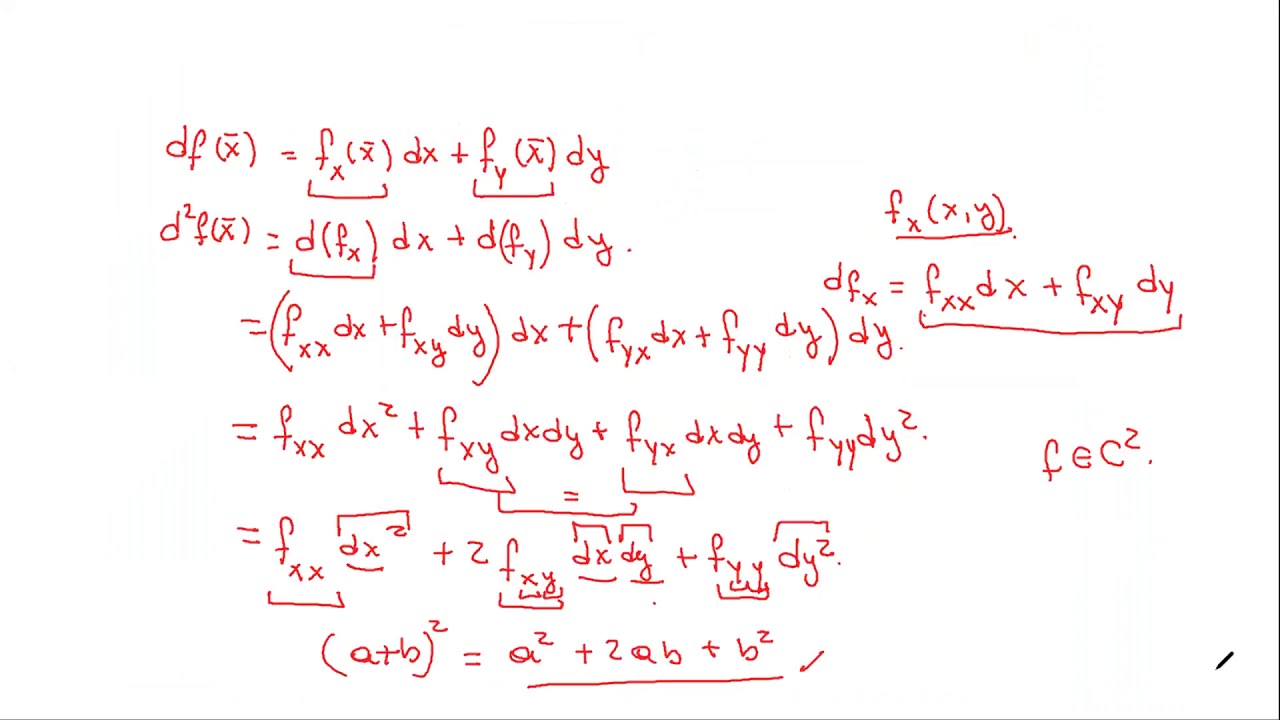 df(x̄) = fₓ(x̄) dx + f_y(x̄) dy
d²f(x̄) = d(fₓ) dx + d(f_y) dy.
fₓ(x,y).
dfₓ = fₓₓ dx + f_xy dy
= (fₓₓ dx + f_xy dy) dx + (f_yx dx + f_yy dy) dy.
= fₓₓ dx² + f_xy dxdy + f_yx dxdy + f_yy dy².
f ∈ C².
=
= fₓₓ dx² + 2 f_xy dx dy + f_yy dy².
(a+b)² = a² + 2ab + b² ✓